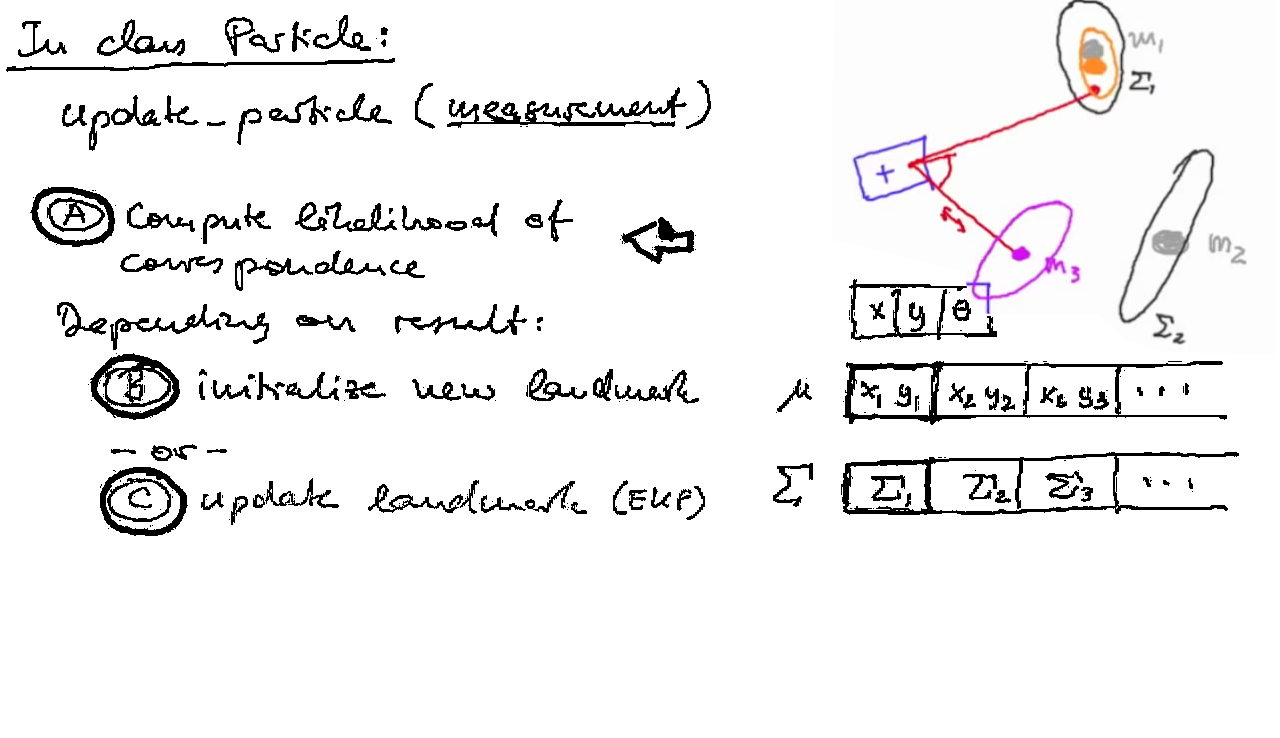 In class Particle:
update_particle (measurement)
A Compute likelihood of
correspondence
Depending on result:
B initialize new landmark
- or -
C update landmark (EKF)
m1
Σ1
+
m3
m2
Σ2
x y θ
μ x1 y1 x2 y2 x3 y3 ...
Σ Σ1 Σ2 Σ3 ...